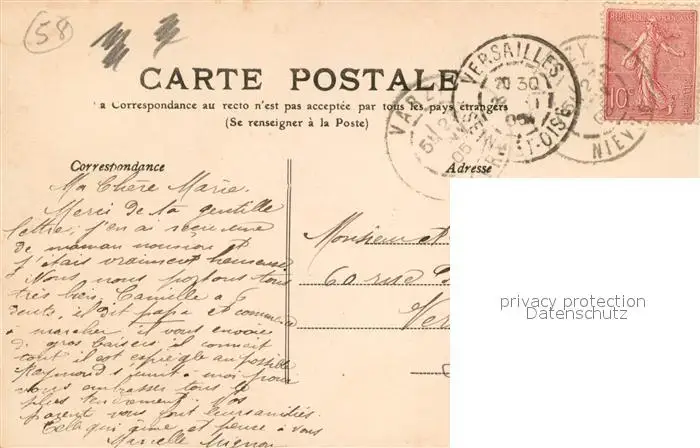 58
CARTE POSTALE
a Correspondance au recto n'est pas acceptée par tous les pays étrangers
(Se renseigner à la Poste)
REPUBLIQUE FRANÇAISE
10c
VERSAILLES
20 30
05
ET-OISE
NIEVRE
Correspondance
Adresse
Ma Chère Marie.
Merci de ta gentille
lettre, j'en ai reçu une
de maman
j'étais vraiment heureuse
Nous nous portons tous
très bien, Camille a 6
dents, il dit papa et commence
à marcher il vous envoie
de gros baisers il connait
tout il est espiègle au possible
Raymond s'joint à moi pour
vous embrasser tous le
plus tendrement. Vos
parent vous font leurs amitiés.
Celle qui t'aime et pense à vous
Marcelle Mignon
Monsieur et
60 rue
Ver
privacy protection
Datenschutz